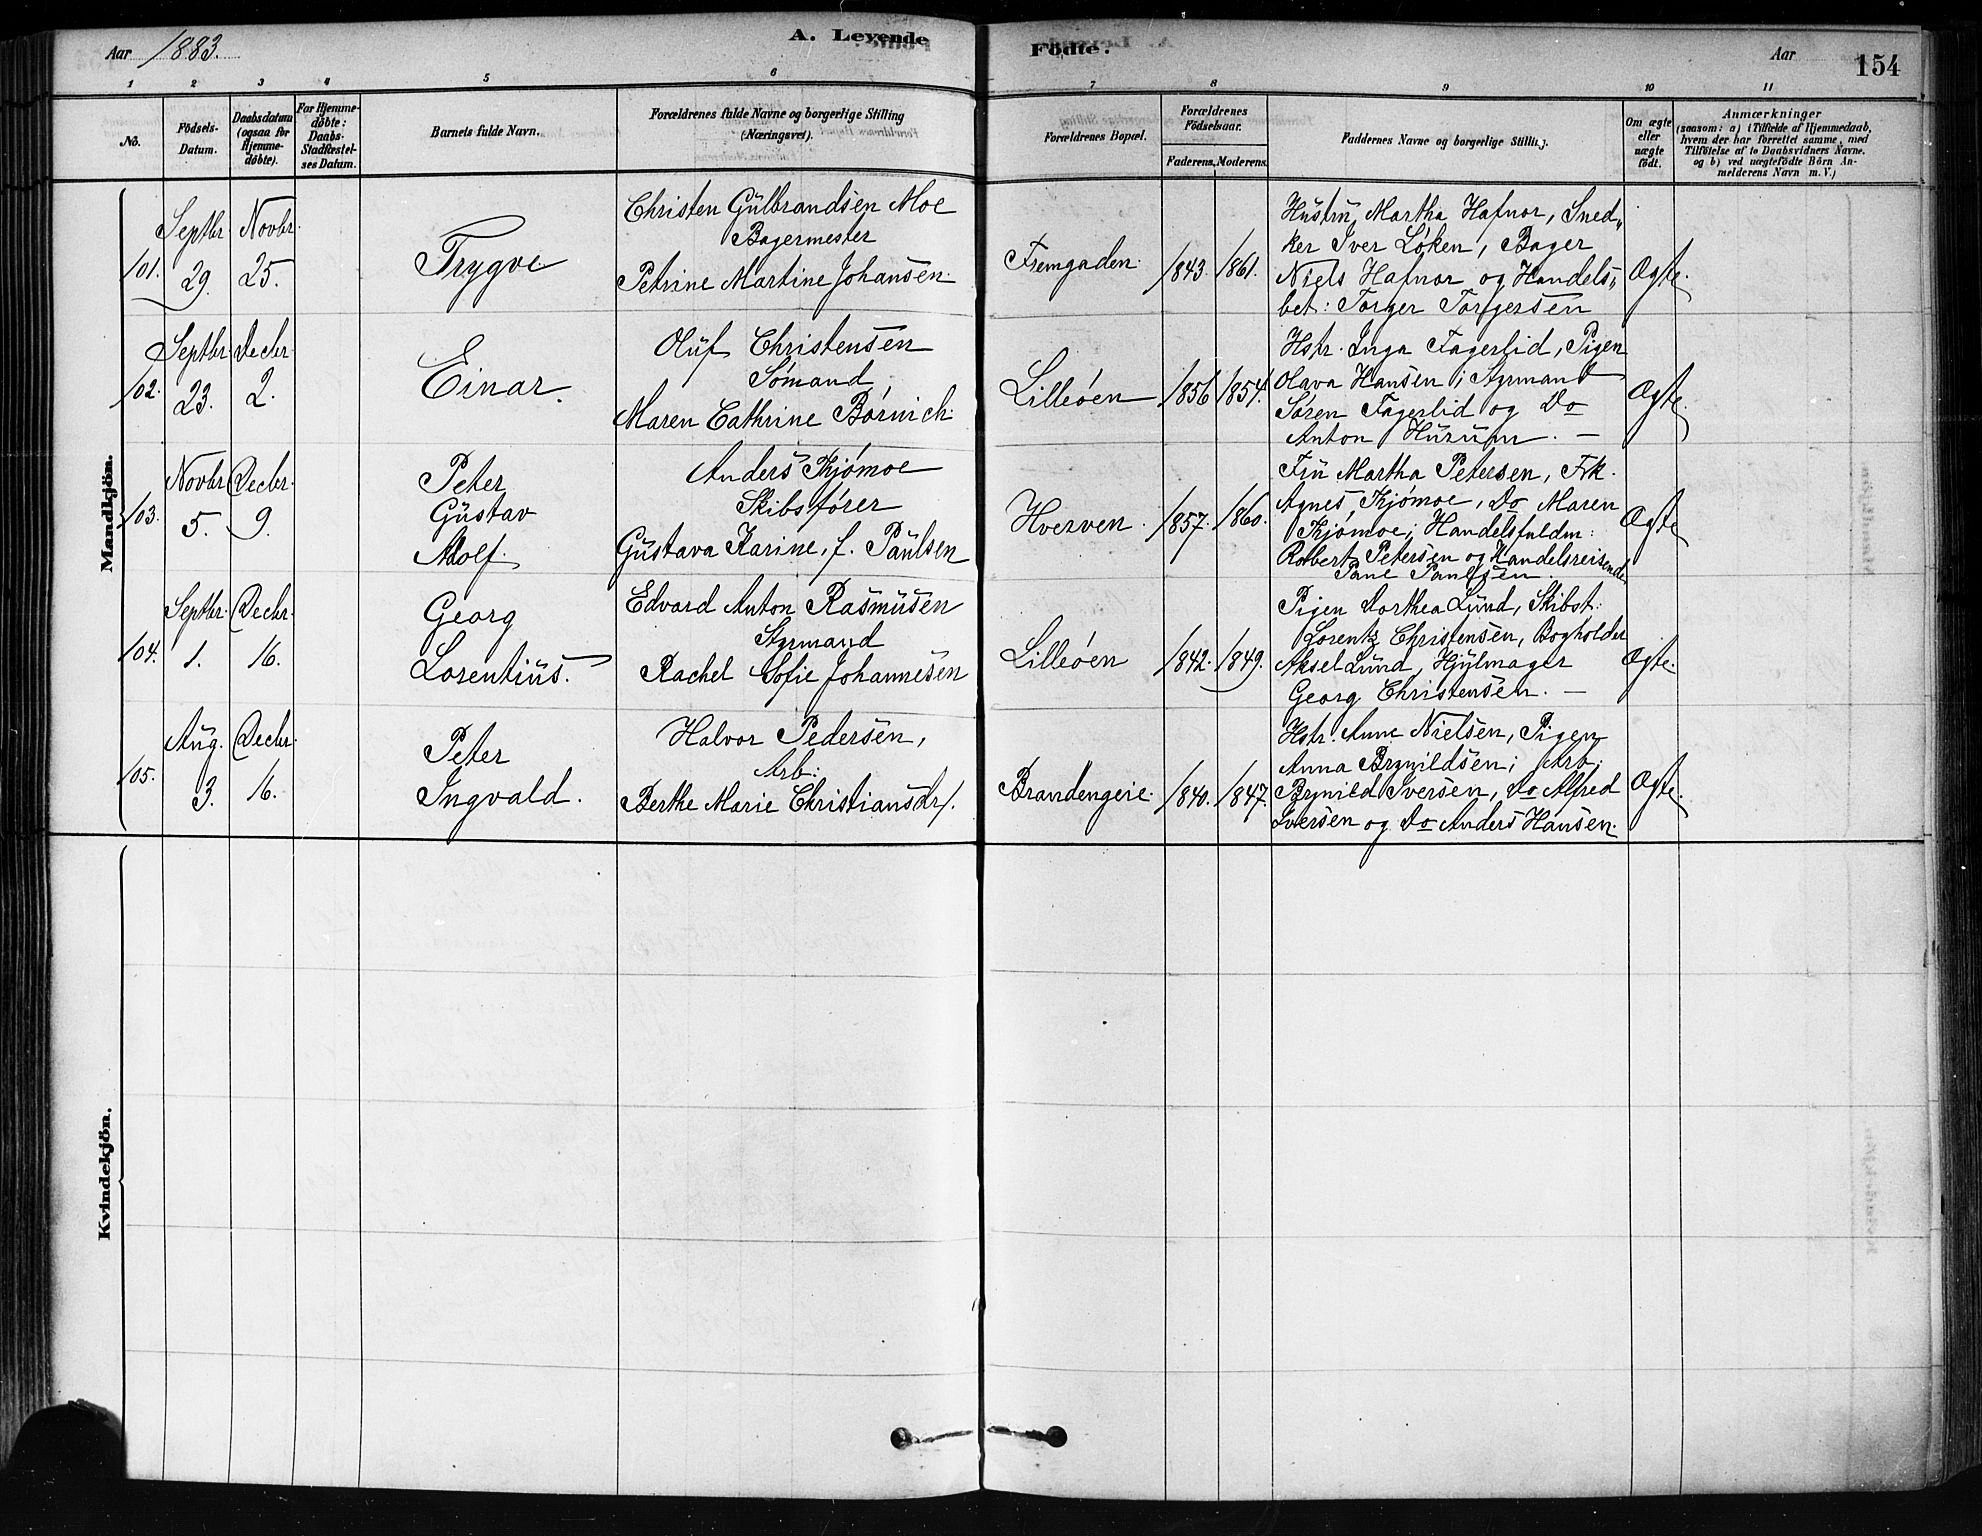 Aar 1883.
A. Levende Födte.
Aar
154
1 2 3 4 5 6 7 8 9 10 11
No.
Födsels-
Datum.
Daabsdatum
(ogsaa for
Hjemme-
döbte).
For Hjemme-
döbte:
Daabs-
Stadfæstel-
ses Datum.
Barnets fulde Navn.
Forældrenes fulde Navne og borgerlige Stilling
(Næringsvei).
Forældrenes Bopæl.
Forældrenes
Födselsaar.
Faderens. Moderens.
Faddernes Navne og borgerlige Stilling.
Om ægte
eller
uægte
födt.
Anmærkninger
(saasom: a) i Tilfælde af Hjemmedaab,
hvem der har forrettet samme, med
Tilföielse af to Daabsvidners Navne.
og b) ved uægtefödte Börn An-
melderens Navn m. V.)
Mandkjön.
101.
Septbr.
29.
Novbr.
25.
Trygve
Christen Gülbrandsen Moe
Bagermester
Petrine Martine Johansen
Fremgaden.
1843. 1861.
Hüstrü Martha Hafnor, Sned„
ker Iver Løken, Bager
Niels Hafnor og Handels„
bet: Torger Torgersen
Ægte.
102.
Septbr.
23.
Decbr.
2.
Einar.
Olüf Christensen
Sømand,
Maren Cathrine Børnich.
Lilleøen
1856 1854.
Hstr. Inga Fagerlid, Pigen
Olava Hansen; Styrmand
Søren Fagerlid og Do
Anton Hürüm. —
Ægte.
103.
Novbr.
5.
Decbr.
9.
Peter
Güstav
Adolf.
Anders Thjømoe
Skibsfører
Güstava Karine, f. Paülsen
Hvezven.
1857. 1860.
Frü Martha Petersen, Frk.
Agnes Thjømoe, Do Maren
Thjømoe; Handelsfuldm:
Robert Petersen og Handelsreisende
Paul Paulsen.
Ægte
104.
Septbr.
1.
Decbr.
16.
Georg
Lorentiüs.
Edvard Anton Rasmüsen
Styrmand
Rachel Sofie Johannesen
Lilleøen
1842. 1849.
Pigen Dorthea Lünd, Skibst:
Lorentz Christensen, Bogholder
Aksel Lünd, Hjülmager
Georg Christensen. —
Ægte.
105.
Aüg.
3.
Decbr.
16.
Peter
Ingvald.
Halvor Pedersen,
Arb:
Berthe Marie Christiansdr/.
Brandengeie.
1840. 1847.
Hstr. Anne Nielsen, Pigen
Anna Brynildsen; Arb.
Brynild Iversen, Do Alfred
Iversen og Do Anders Hansen.
Ægte.
Kvindekjön.